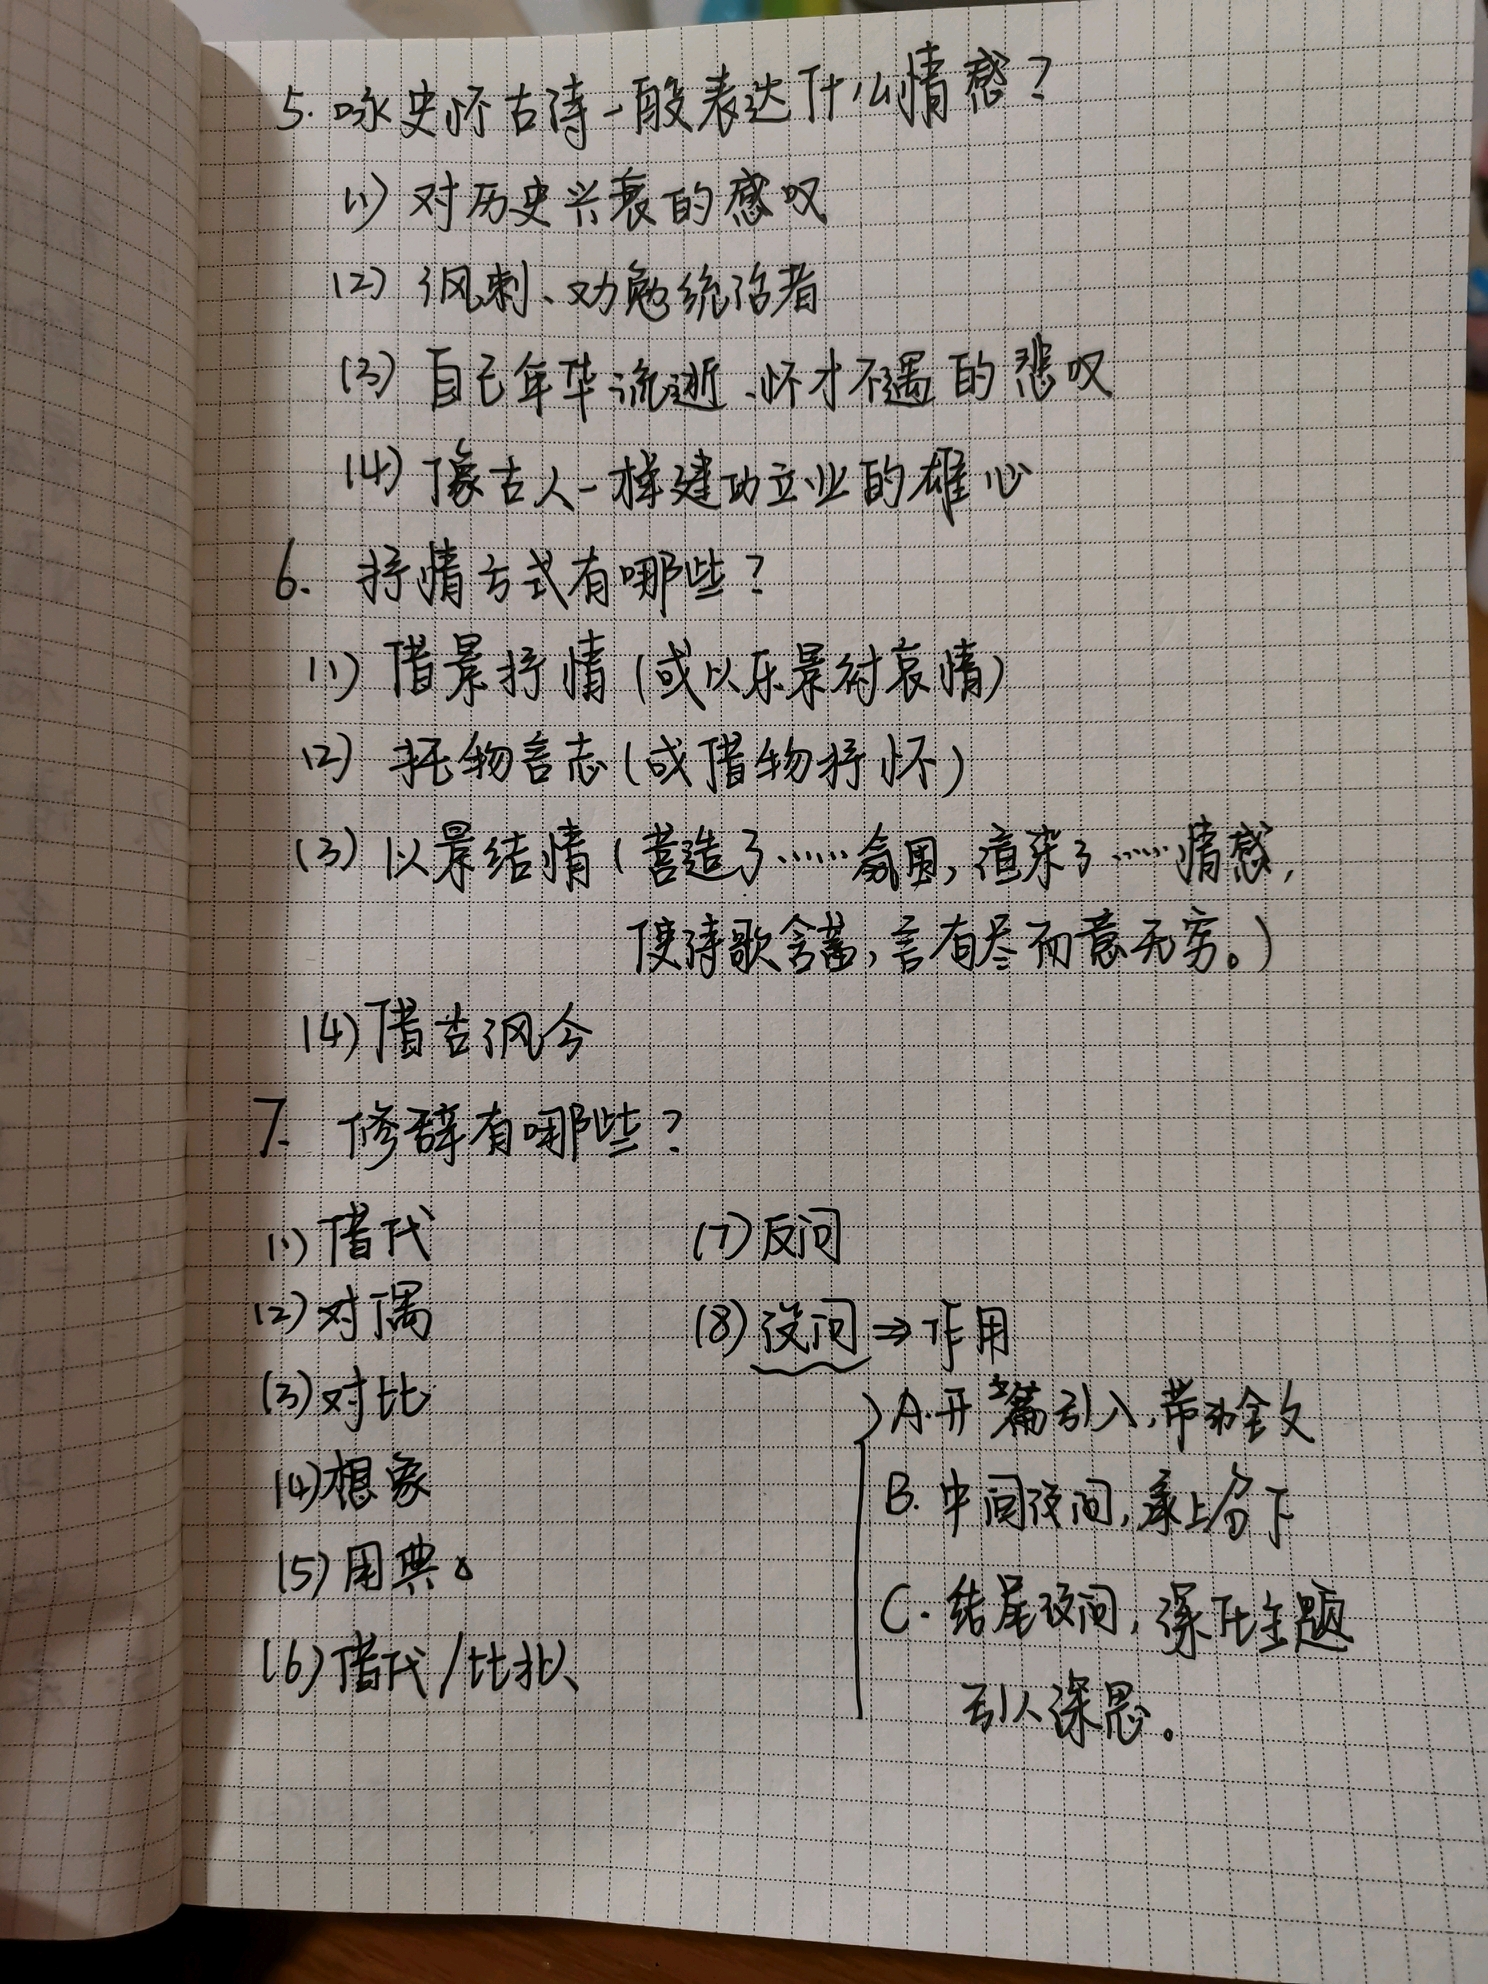 5. 咏史怀古诗一般表达什么情感？
(1) 对历史兴衰的感叹
(2) 讽刺、劝勉统治者
(3) 自己年华流逝、怀才不遇的悲叹
(4) 像古人一样建功立业的雄心
6. 抒情方式有哪些？
(1) 借景抒情（或以乐景衬哀情）
(2) 托物言志（或借物抒怀）
(3) 以景结情（营造了……氛围，渲染了……情感，
使诗歌含蓄，言有尽而意无穷。）
(4) 借古讽今
7. 修辞有哪些？
(1) 借代
(2) 对偶
(3) 对比
(4) 想象
(5) 用典。
(6) 借代/比拟
(7) 反问
(8) 设问⇒作用
A. 开篇引入，带动全文
B. 中间设问，承上启下
C. 结尾设问，深化主题
引人深思。